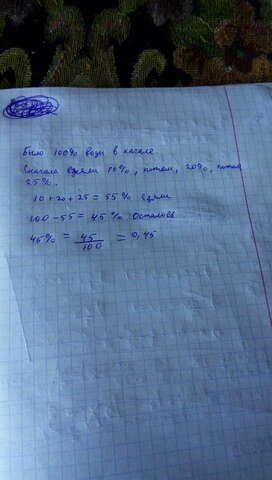 Было 100% воды в начале
Сначала взяли 10%, потом, 20%, потом
25%.
10 + 20 + 25 = 55% взяли
100 - 55 = 45% осталось
45% = 45/100 = 0,45